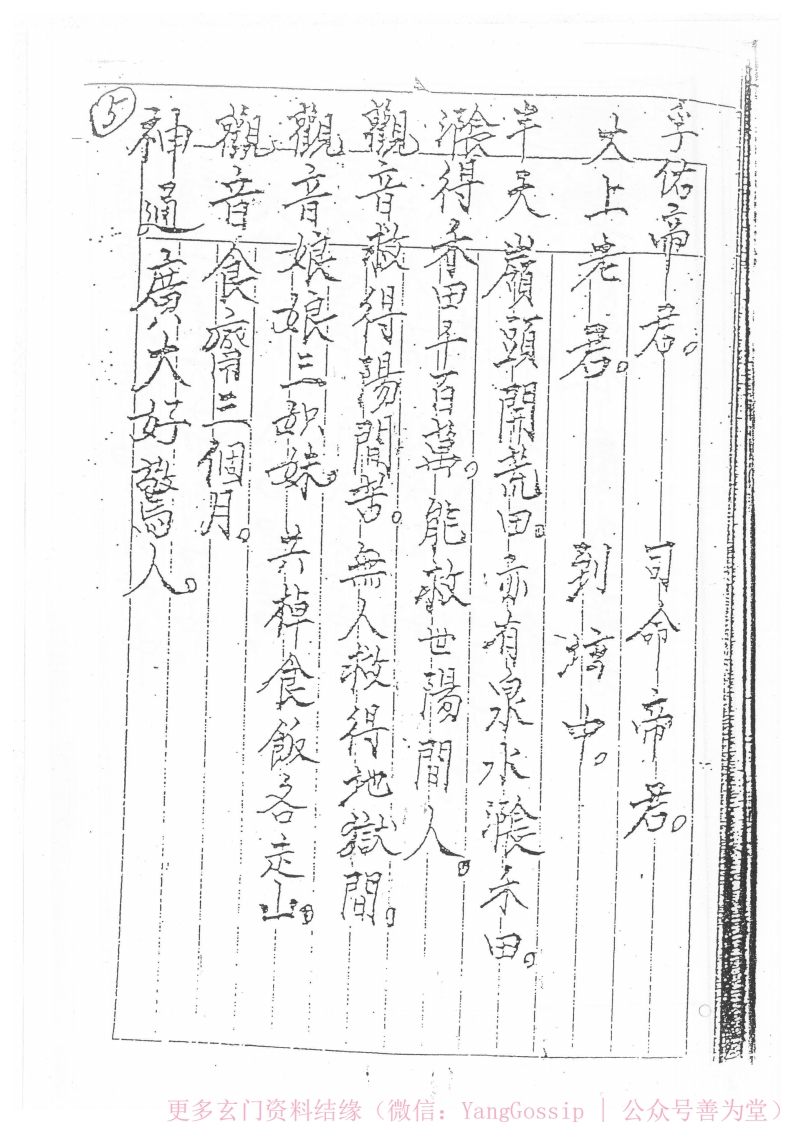 孚佑帝君。司命帝君。
太上老君。到壇中。
半天嶺頭開荒田。亦有泉水養禾田。
得禾田千百萬。能救世陽間人。
觀音救得陽間苦。無人救得地獄間。
觀音娘娘三姐妹。共棹食飯各走山。
觀音食齋三個月。
神通廣大好驚人。
⑤
更多玄门资料结缘（微信：YangGossip | 公众号善为堂）